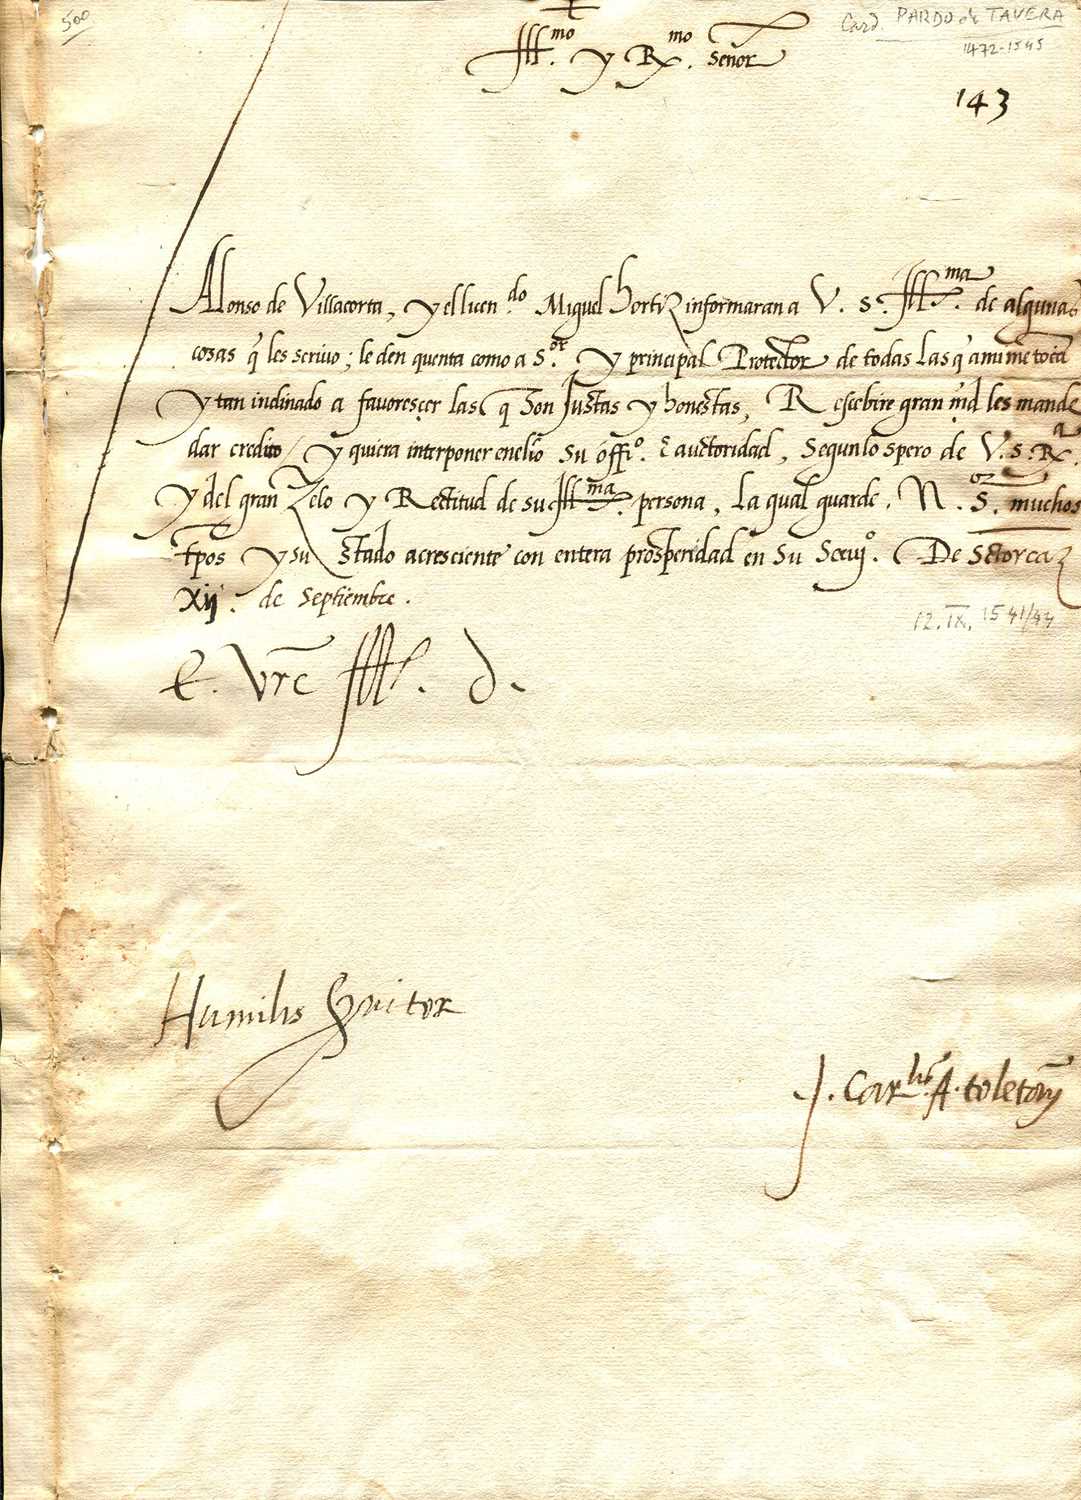 500
Card. PARDO de TAVERA
1472-1545
Illmo. y Rmo. señor
143
Alonso de Villacorta, y el licen.do Miguel hortiz informaran a V. S. Illma. de algunas
cosas q̃ les scrivo; le den quenta como a S.or y principal Protector de todas las q̃ a mi me tocã
y tan inclinado a favoresçer las q̃ son Justas y honestas, Rescebire gran m̃d les mande
dar credito / y quiera interponer en ello su offi.o ẽ auctoridad, segun lo spero de V. S. R.a
y del gran Zelo y Rectitud de su Illma. persona, la qual guarde. N. S.or muchos
tpos y su stado acresciente con entera prosperidad en su servi.o. De Sctorcaz
xij. de septiembre.
12. IX. 1541/44
E. Vrẽ Ill. d.
Humilis servitor
J. Car.lis A. toletan